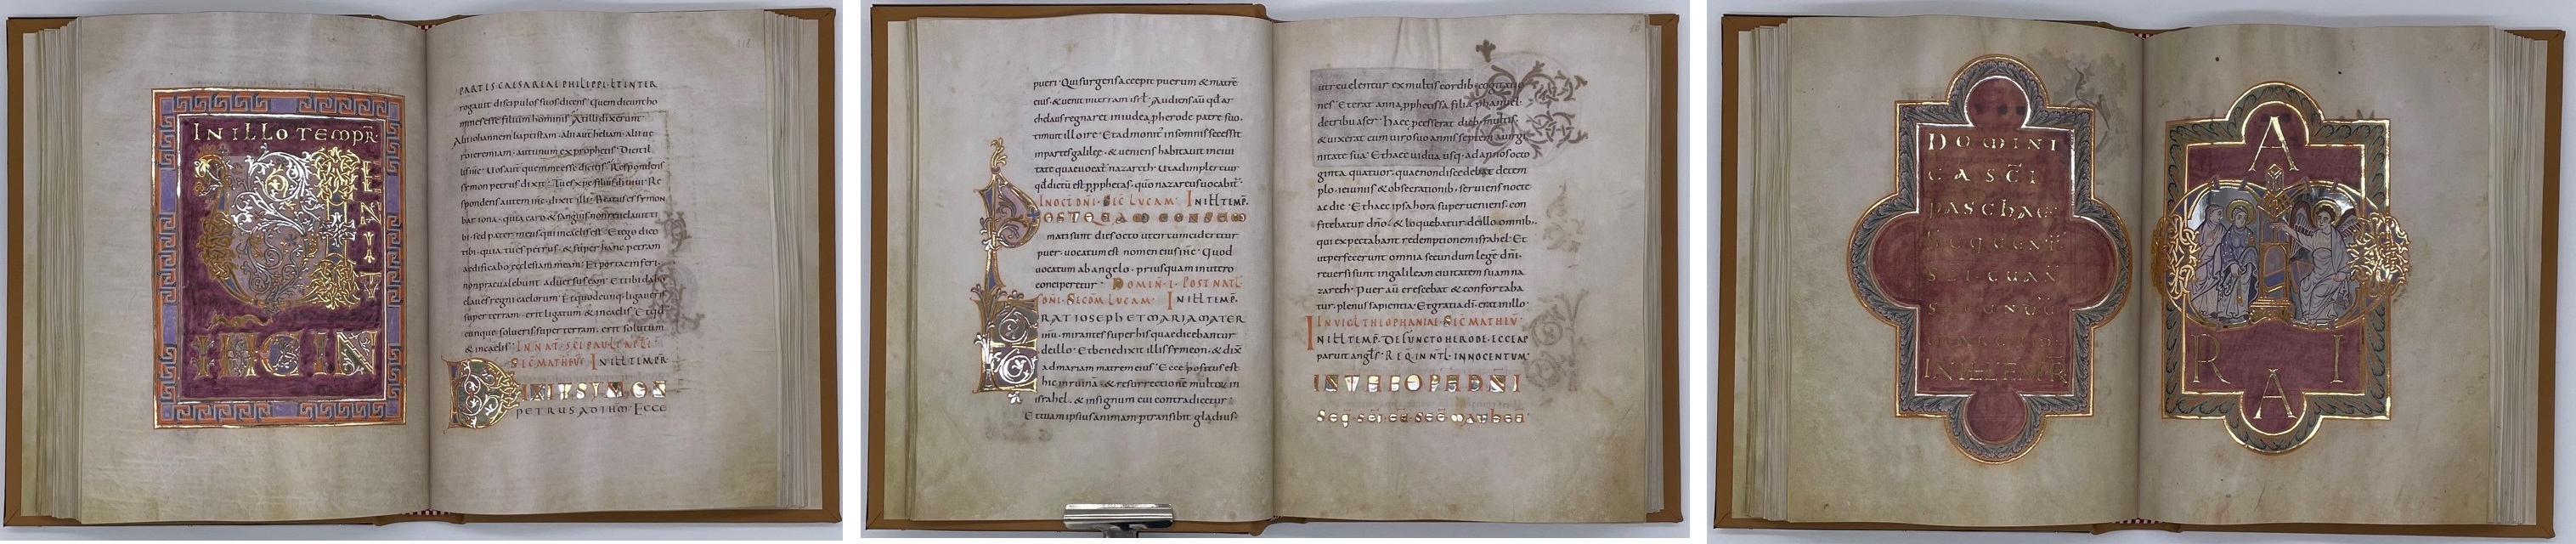 IN ILLO TEMPR
VENIT
IHC IN
PARTIS CAESAREAE PHILIPPI. ET INTER
rogauit discipulos suos dicens. Quem dicunt ho
mines esse filium hominis. At illi dixerunt.
Alii iohannem baptistam. alii aut heliam. alii ue
ro ieremiam. aut unum ex prophetis. Dicit il
lis ihc. Uos aut quem me esse dicitis. Respondens
symon petrus dixit. Tu es xpc filius di uiui. Re
spondens autem ihc. dixit illi. Beatus es symon
bar iona. quia caro & sanguis non reuelauit ti
bi. sed pater meus qui in caelis est. Et ego dico
tibi. quia tu es petrus. & super hanc petram
aedificabo ecclesiam meam. Et portae inferi.
non praeualebunt aduersus eam. Et tibi dabo
claues regni caelorum. Et quodcunq; ligaueris
super terram. erit ligatum & in caelis. Et qd
cunque solueris super terram. erit solutum
& in caelis. IN NAT. SCI PAULI
SEC MATHEU. IN ILL TEMPR.
DIXIT SIMON
PETRUS AD IHM. ECCE
pueri. Qui surgens accepit puerum & matre
eius. & uenit in terram isrl. Audiens au qd ar
chelaus regnaret in iudea p herode patre suo.
timuit illo ire. Et admonit in somnis secessit
in partes galilee. & ueniens habitauit in ciui
tate quae uocat nazareth. Ut adimpleretur
qd dictu est p pphetas. quo nazareus uocabit.
IN OCT DNI. SEC LUCAM. IN ILL TEMP.
POSTQUAM CONSUM
mati sunt dies octo ut circumcideretur
puer. uocatum est nomen eius ihc. Quod
uocatum ab angelo. priusquam in utero
conciperetur. DOMIN. I. POST NATL
DNI. SECDM LUCAM. IN ILL TEMP.
ERAT IOSEPH ET MARIA MATER
ihu. mirantes super his quae dicebantur
de illo. Et benedixit illis symeon. & dix
ad mariam matrem eius. Ecce positus est
hic in ruina. & resurrectione multor in
israhel. & in signum cui contradicetur.
Et tuam ipsius animam ptransibit gladius.
ut reuelentur ex multis cordib; cogitatio
nes. Et erat anna pphetissa filia phanuel.
de tribu aser. Haec pcesserat dieb; multis.
& uixerat cum uiro suo annis septem a uirgi
nitate sua. Et haec uidua usq; ad annos octo
ginta quatuor. quae non discedebat de tem
plo. ieiuniis & obsecrationib; seruiens nocte
ac die. Et haec ipsa hora superueniens. con
fitebatur dno. & loquebatur de illo omnib.
qui expectabant redemptionem israhel. Et
ut perfecerunt omnia secundum lege dni.
reuersi sunt in galileam in ciuitatem suam na
zareth. Puer au crescebat & conforta ba
tur. plenus sapientia. Et gratia di erat in illo.
IN UIGL THEOPHANIAE. SEC MATHEU.
IN ILL TEMP. DEFUNCTO HERODE. ECCE AP
paruit angls. REQ IN NTL. INNOCENTUM.
DOMINI
CA SCI
PASCHAE
IN ILL TEMPR
A
R I
A